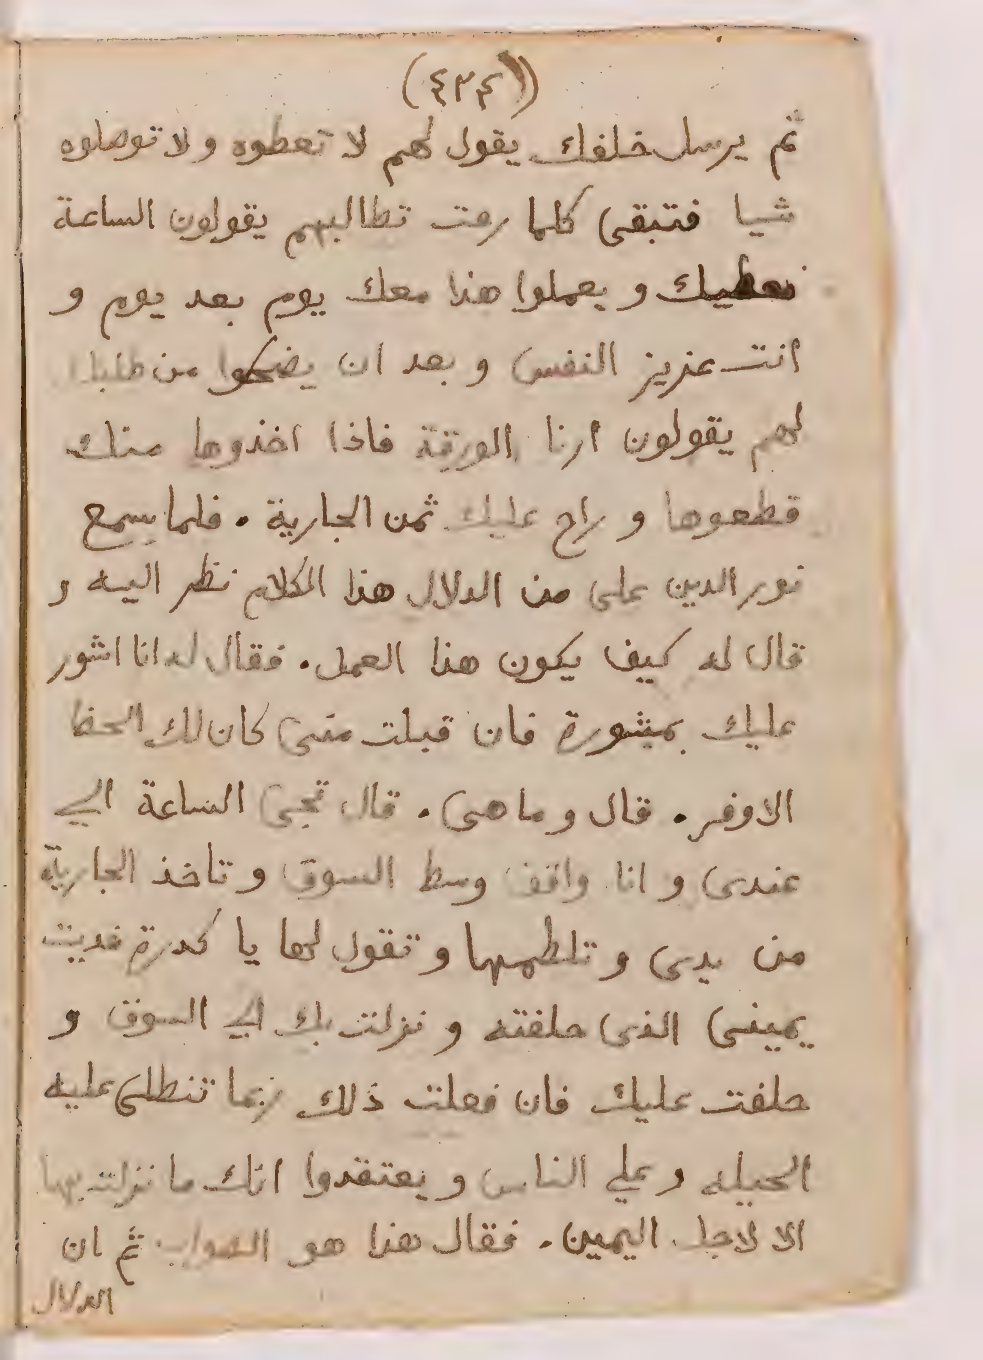 (٤٣٤)
ثم يرسل خلفك يقول لهم لا تعطوه و لا توصلوه
شيا فتبقى كلما رحت تطالبهم يقولون الساعة
نعطيك و يعملوا هذا معك يوم بعد يوم و
انت عزيز النفس و بعد ان يضحكوا من طلبك
لهم يقولون ارنا الورقة فاذا اخذوها منك
قطعوها و راح عليك ثمن الجارية . فلما سمع
نور الدين على من الدلال هذا الكلام نظر اليه و
قال له كيف يكون هذا العمل . فقال له انا اشور
عليك بمشورة فان قبلت منى كان لك الحظ
الاوفر . قال و ما هى . قال تجى الساعة الي
عندى و انا واقف وسط السوق و تاخذ الجارية
من يدى و تلطمها و تقول لها يا كدرة فديت
يمينى الذى حلفته و نزلت بك الي السوق و
حلفت عليك فان فعلت ذلك ربما تنطلى عليه
الحيله و علي الناس و يعتقدوا انك ما نزلت بها
الا لاجل اليمين . فقال هذا هو الصواب ثم ان
الدلال